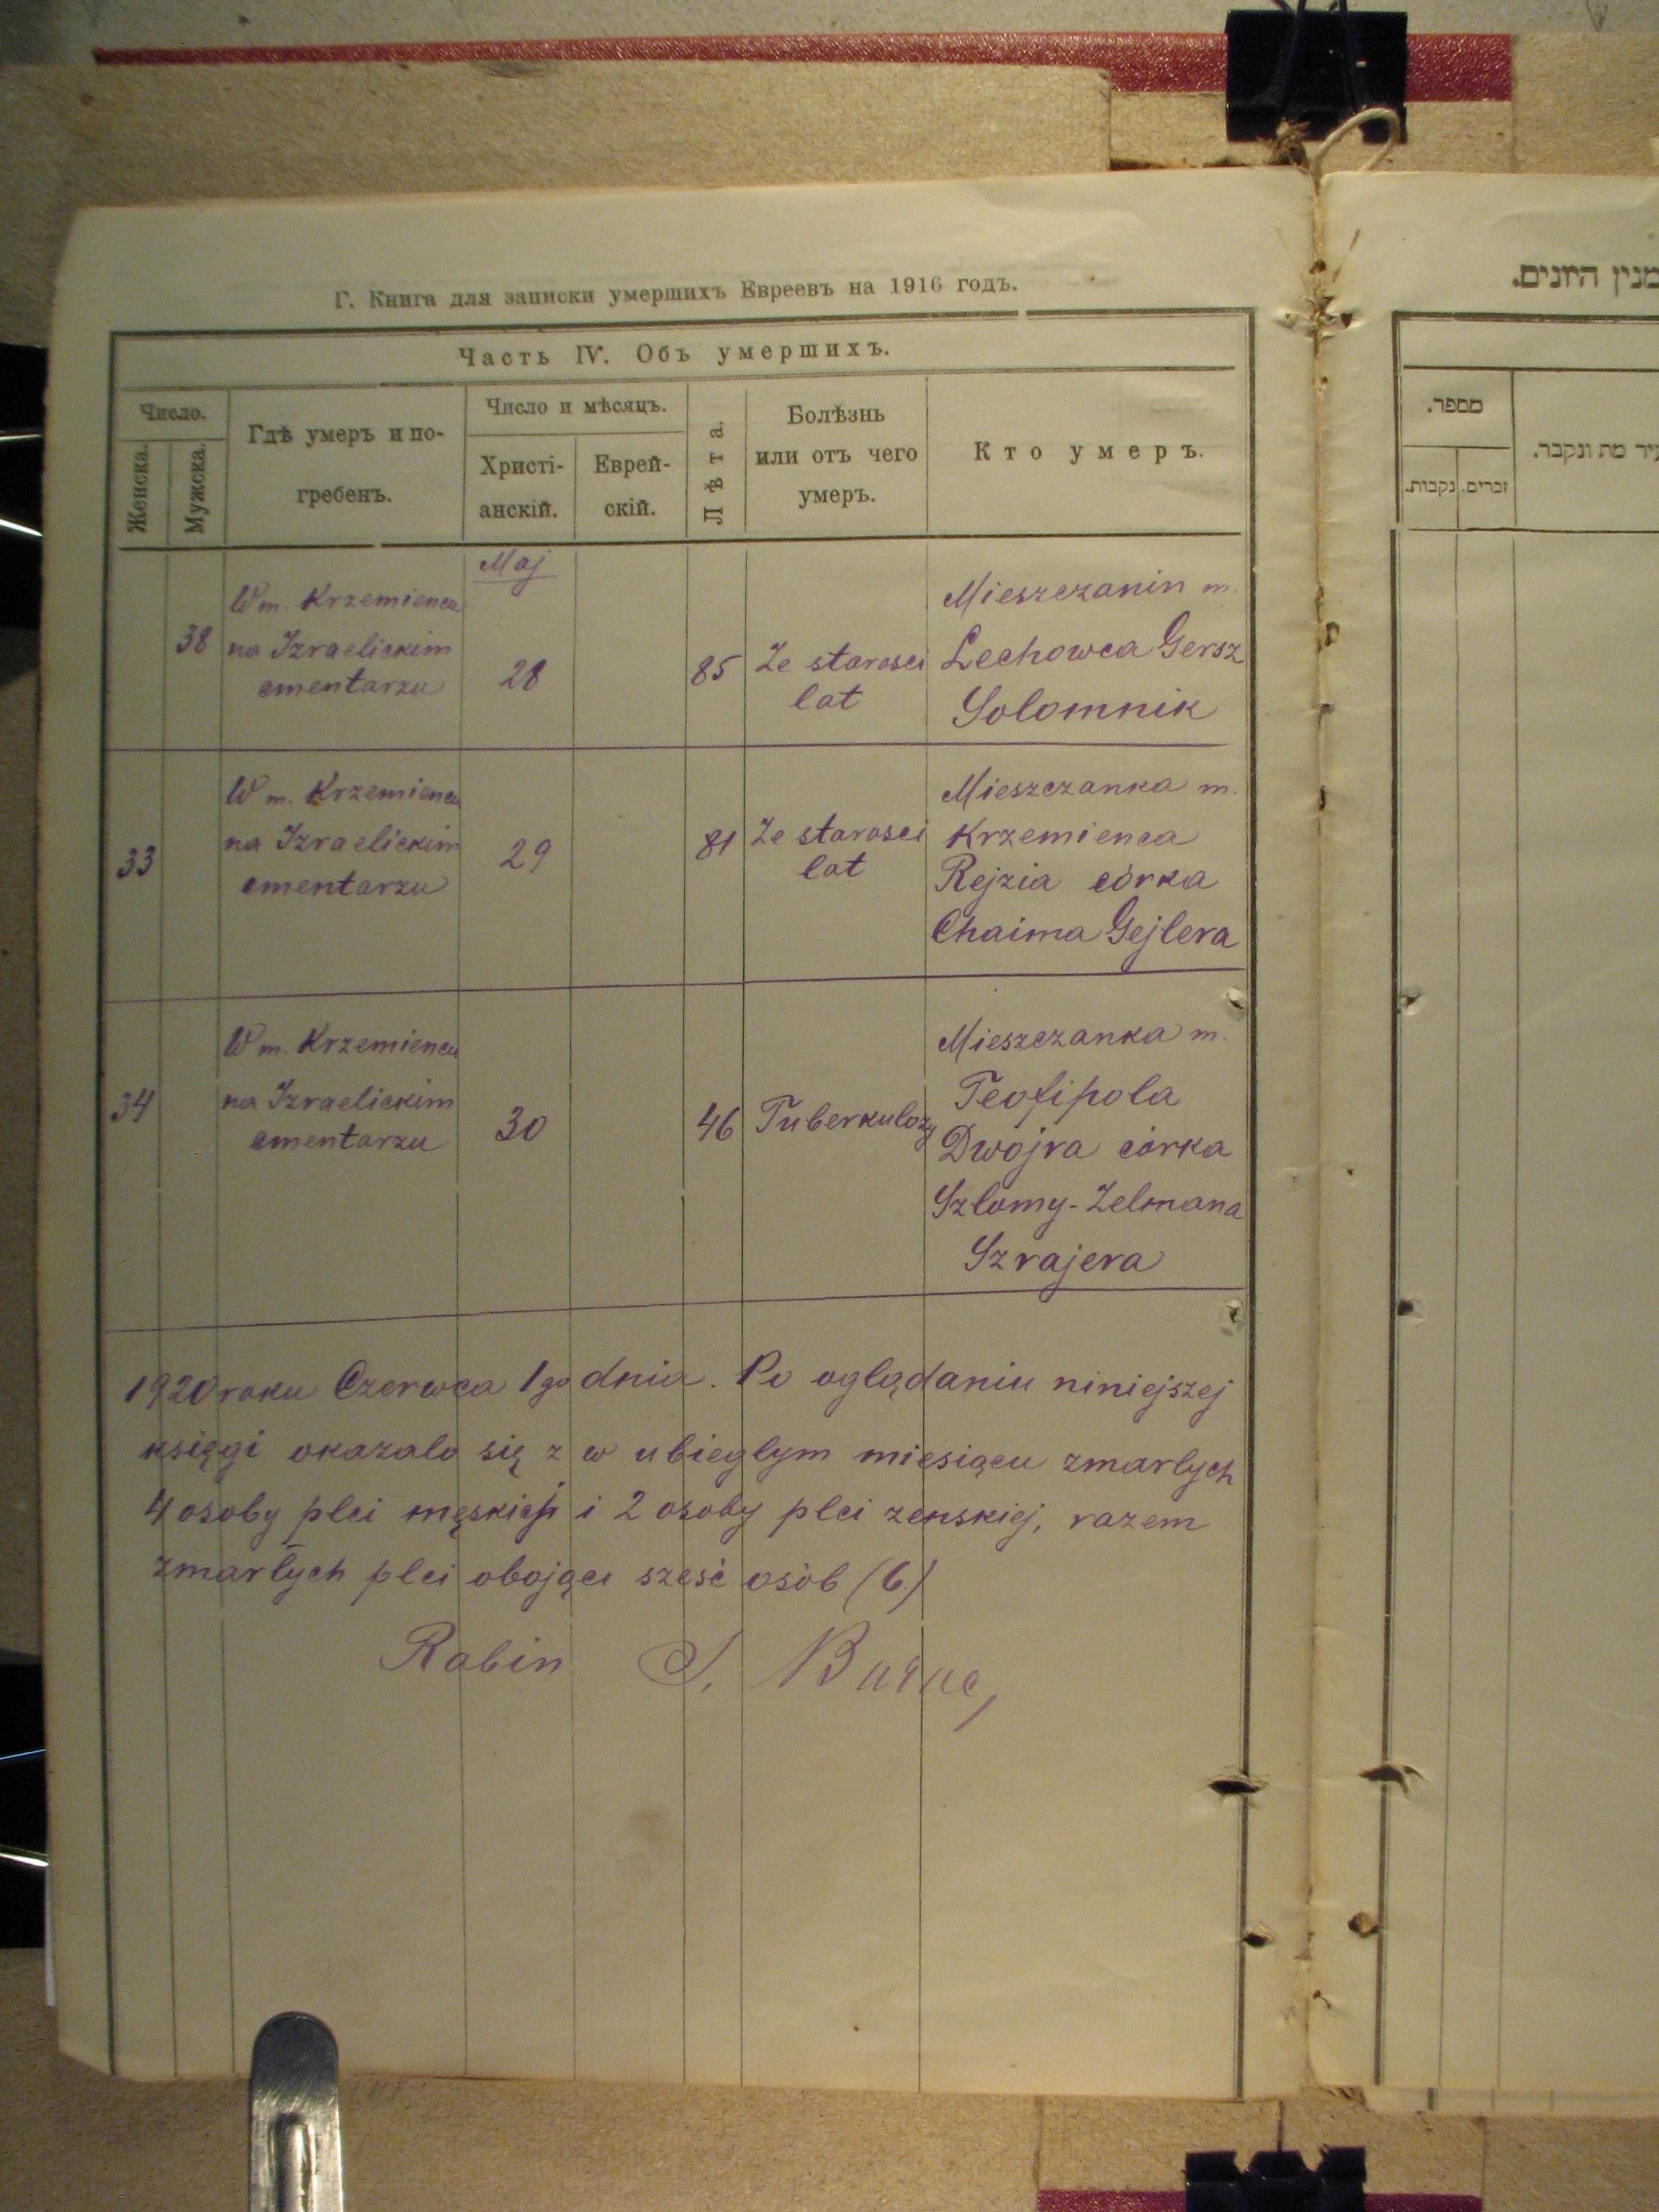 Г. Книга для записки умершихъ Евреевъ на 1916 годъ.
Часть IV. Объ умершихъ.
Число.
Женска.
Мужска.
Гдѣ умеръ и по-
гребенъ.
Число и мѣсяцъ.
Христі-
анскій.
Еврей-
скій.
Лѣта.
Болѣзнь
или отъ чего
умеръ.
Кто умеръ.
Maj
38
W m. Krzemiencu
na Izraelickim
cmentarzu
28
85
Ze starosci
lat
Mieszczanin m.
Lechowca Gersz
Solomnik
33
W m. Krzemiencu
na Izraelickim
cmentarzu
29
81
Ze starosci
lat
Mieszczanka m.
Krzemienca
Rejzia córka
Chaima Gejlera
34
W m. Krzemiencu
na Izraelickim
cmentarzu
30
46
Tuberkulozy
Mieszczanka m.
Teofipola
Dwojra córka
Szlomy-Zelmana
Szrajera
1920 roku Czerwca 1go dnia. Po oglądaniu niniejszej
księgi okazalo się z w ubieglym miesiącu zmarlych
4 osoby plci męskiej i 2 osoby plci zenskiej, razem
zmarłych plci obojga sześć osób (6.)
Rabin S.
מנין היונים.
מספר.
זכרים.
נקבות.
עיר מת ונקבר.